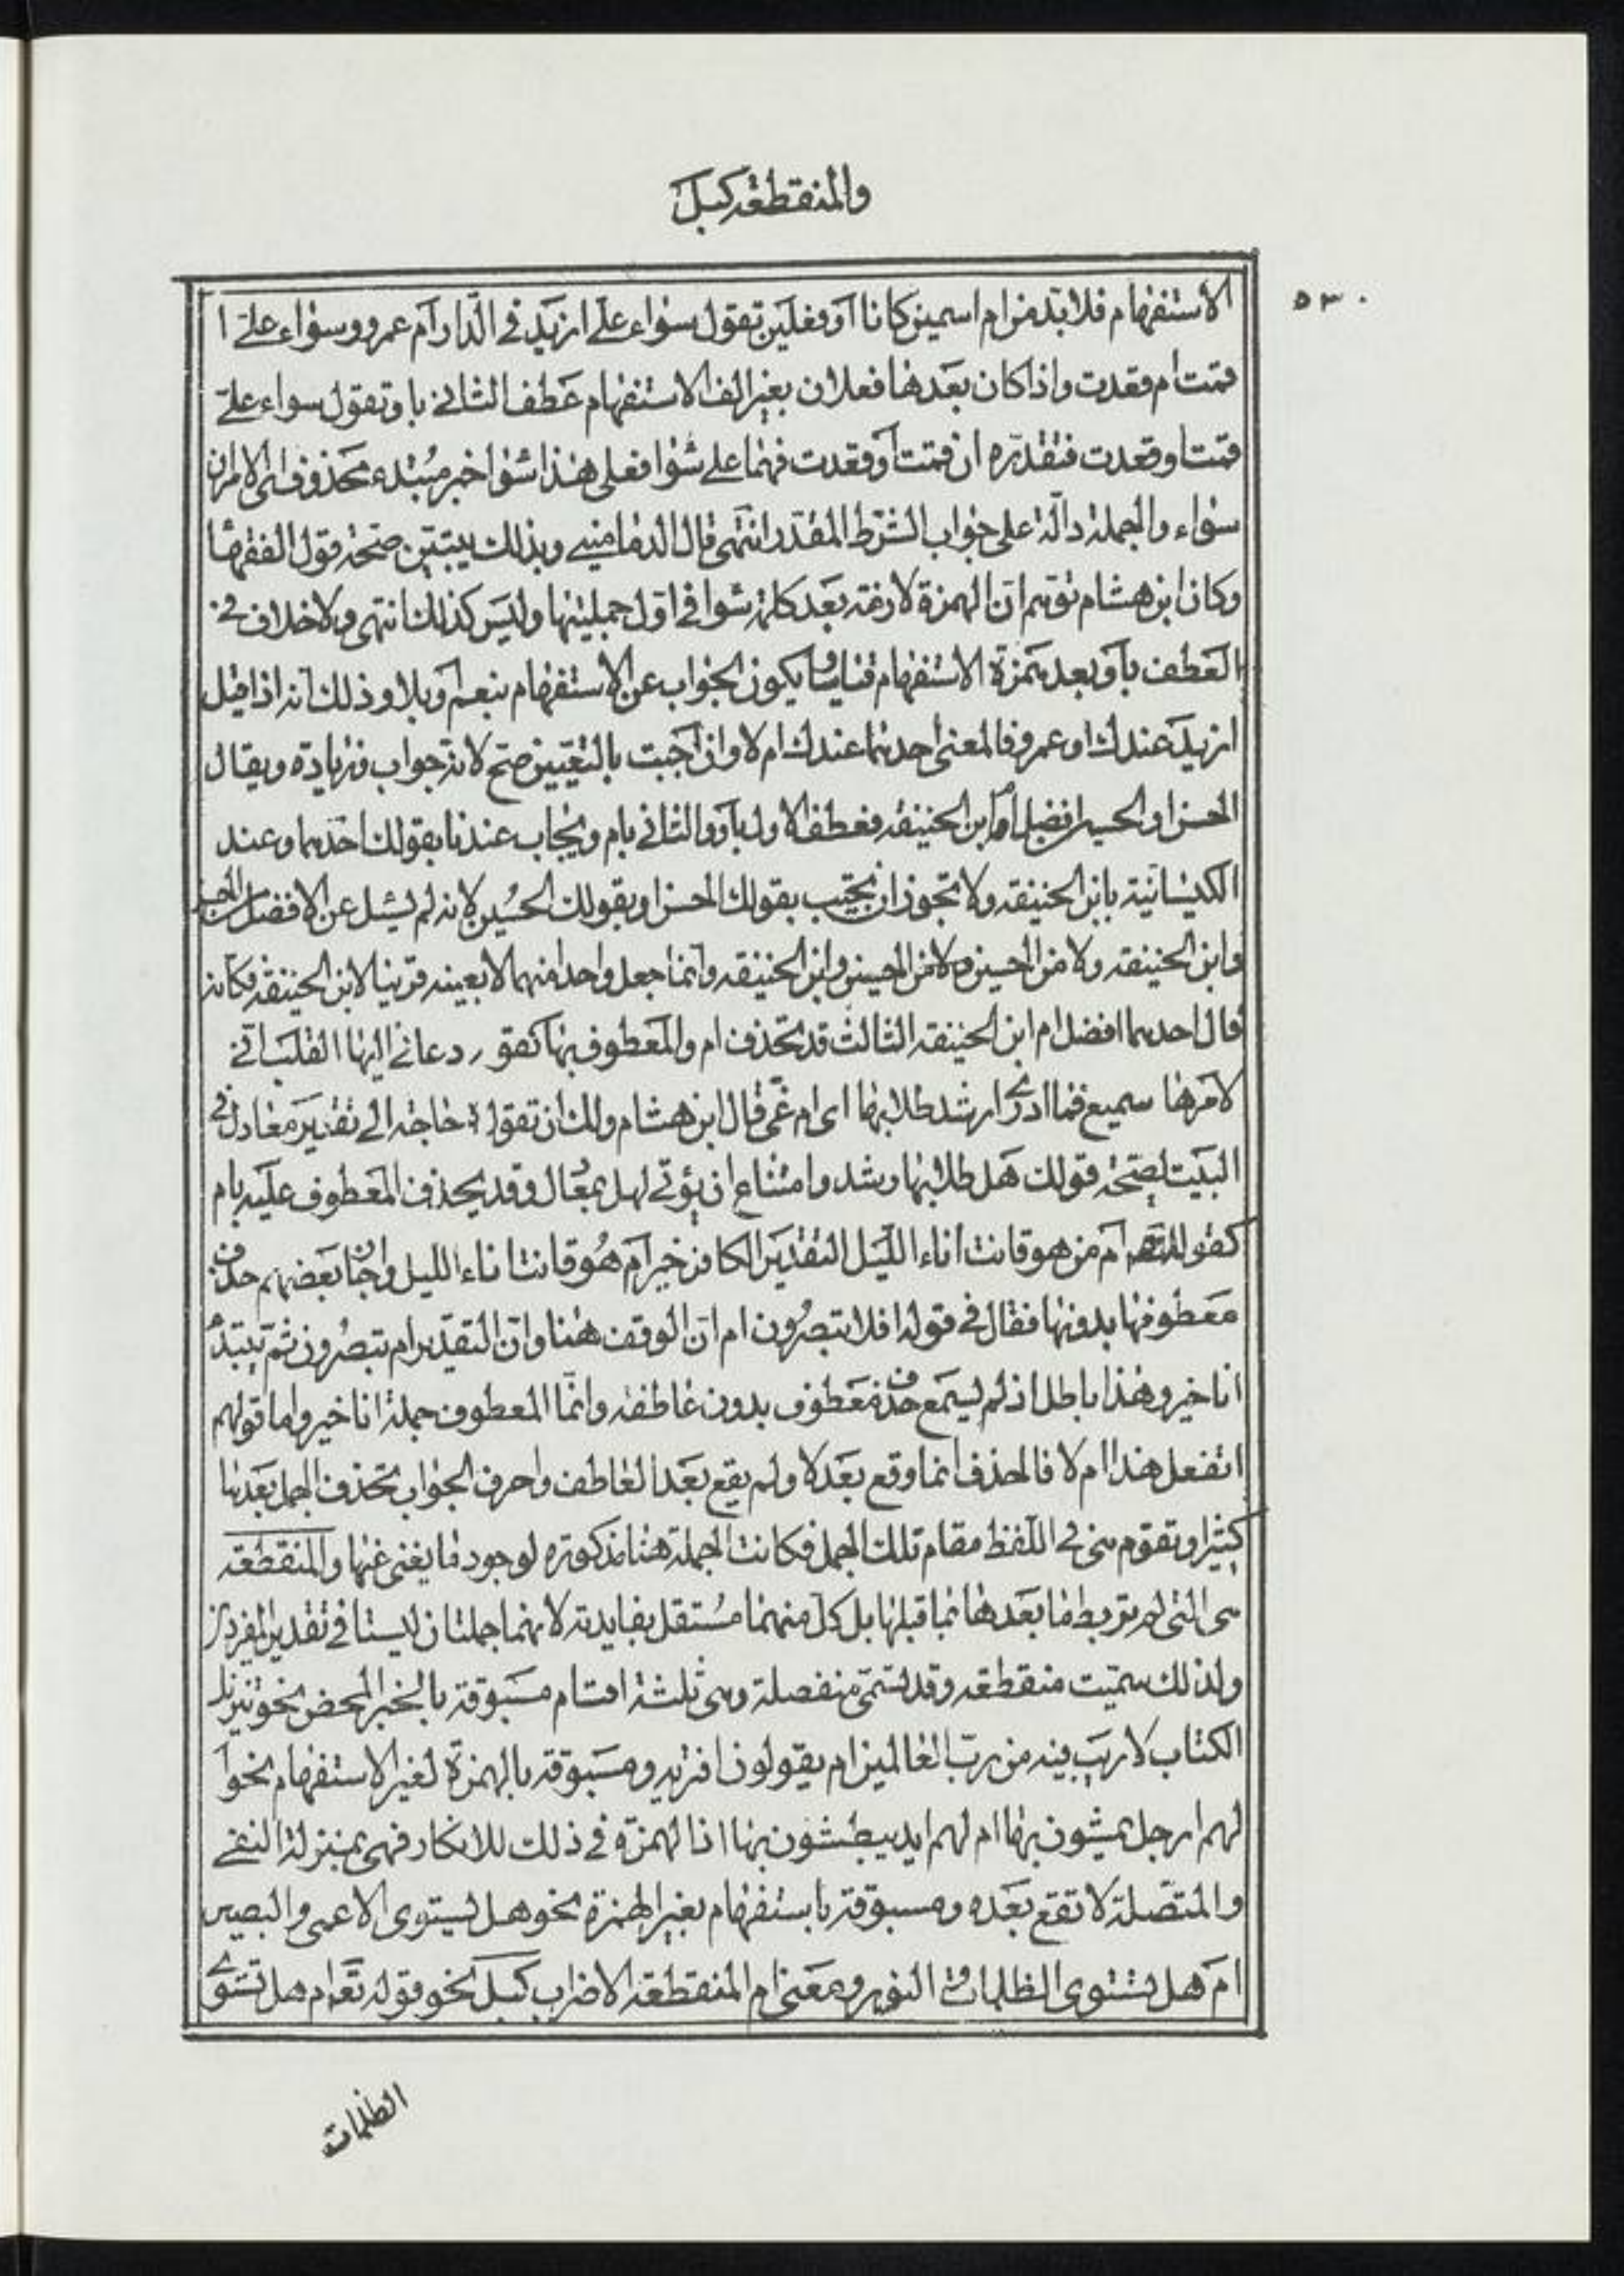 والمنقطعة كبل
٥٣٠
الاستفهام فلا بد من ام اسمين كانا او فعلين تقول سواء علي ازيد في الدار ام عمرو وسواء علي ا
قمت ام قعدت واذا كان بعدها فعلان بغير الف الاستفهام عطف الثاني باو تقول سواء علي
قمت او قعدت فتقديره ان قمت او قعدت فهما علي سوا فعلى هذا سوا خبر مبتدء محذوف اى الامران
سواء والجملة دالة على جواب الشرط المقدر انتهى قال الدمامينى وبذلك يتبين صحة قول الفقها
وكان ابن هشام توهم ان الهمزة لازمة بعد كلمة سوا في اول جملتيها وليس كذلك انتهى ولا خلاف في
العطف باو بعد همزة الاستفهام قياسا ويكون الجواب عن الاستفهام بنعم او بلا وذلك انه اذا قيل
ازيد عندك او عمرو فالمعنى احدهما عندك ام لا وان اجبت بالتعيين صح لانه جواب وزيادة ويقال
الحسن او الحسين افضل ام ابن الحنيفة فعطف الاول باو والثاني بام ويجاب عندنا بقولك احدهما وعند
الكيسانية بابن الحنيفة ولا يجوز ان يجيب بقولك الحسن او بقولك الحسين لانه لم يسئل عن الافضل من الحسن
وابن الحنيفة ولا من الحسين ولا من الحسين وابن الحنيفة وانما جعل واحدا منهما لا بعينه قرينا لابن الحنيفة فكانه
قال احدهما افضل ام ابن الحنيفة الثالث قد تحذف ام والمعطوف بها كقو ر دعاني اليها القلب اني
لامرها سميع فما ادرى ارشد طلابها اى ام غي قال ابن هشام ولك ان تقول لا حاجة الى تقدير معادل في
البيت لصحة قولك هل طلابها رشد وامتناع ان يؤتى لهل بمعادل وقد يحذف المعطوف عليه بام
كقوله تعالى ام من هو قانت اناء الليل التقدير الكافر خير ام هو قانت اناء الليل واجاز بعضهم حذف
معطوفها بدونها فقال في قوله افلا تبصرون ام ان الوقف هنا وان التقدير ام تبصرون ثم يبتدء
انا خير وهذا باطل اذ لم يسمع حذف معطوف بدون عاطفه وانما المعطوف جملة انا خير واما قولهم
اتفعل هذا ام لا فالحذف انما وقع بعد لا ولم يقع بعد العاطف واحرف الجواب تحذف الجمل بعدها
كثيرا وتقوم هى في اللفظ مقام تلك الجمل فكانت الجملة هنا مذكورة لوجود ما يغنى عنها والمنقطعة
هى التى لم تربط ما بعدها بما قبلها بل كل منهما مستقل بفايدته لانهما جملتان ليستا في تقدير المفردين
ولذلك سميت منقطعه وقد تسمى منفصلة وهى ثلثة اقسام مسبوقة بالخبر المحض نحو تنزيل
الكتاب لا ريب فيه من رب العالمين ام يقولون افتريه ومسبوقة بالهمزة لغير الاستفهام نحو ا
لهم ارجل يمشون بها ام لهم ايد يبطشون بها اذ الهمزة في ذلك للانكار فهى بمنزلة النفى
والمتصلة لا تقع بعده ومسبوقة باستفهام بغير الهمزة نحو هل يستوى الاعمى والبصير
ام هل تستوى الظلمات والنور ومعنى ام المنقطعة الاضراب كبل نحو قوله تعا ام هل تستوى
الظلمات